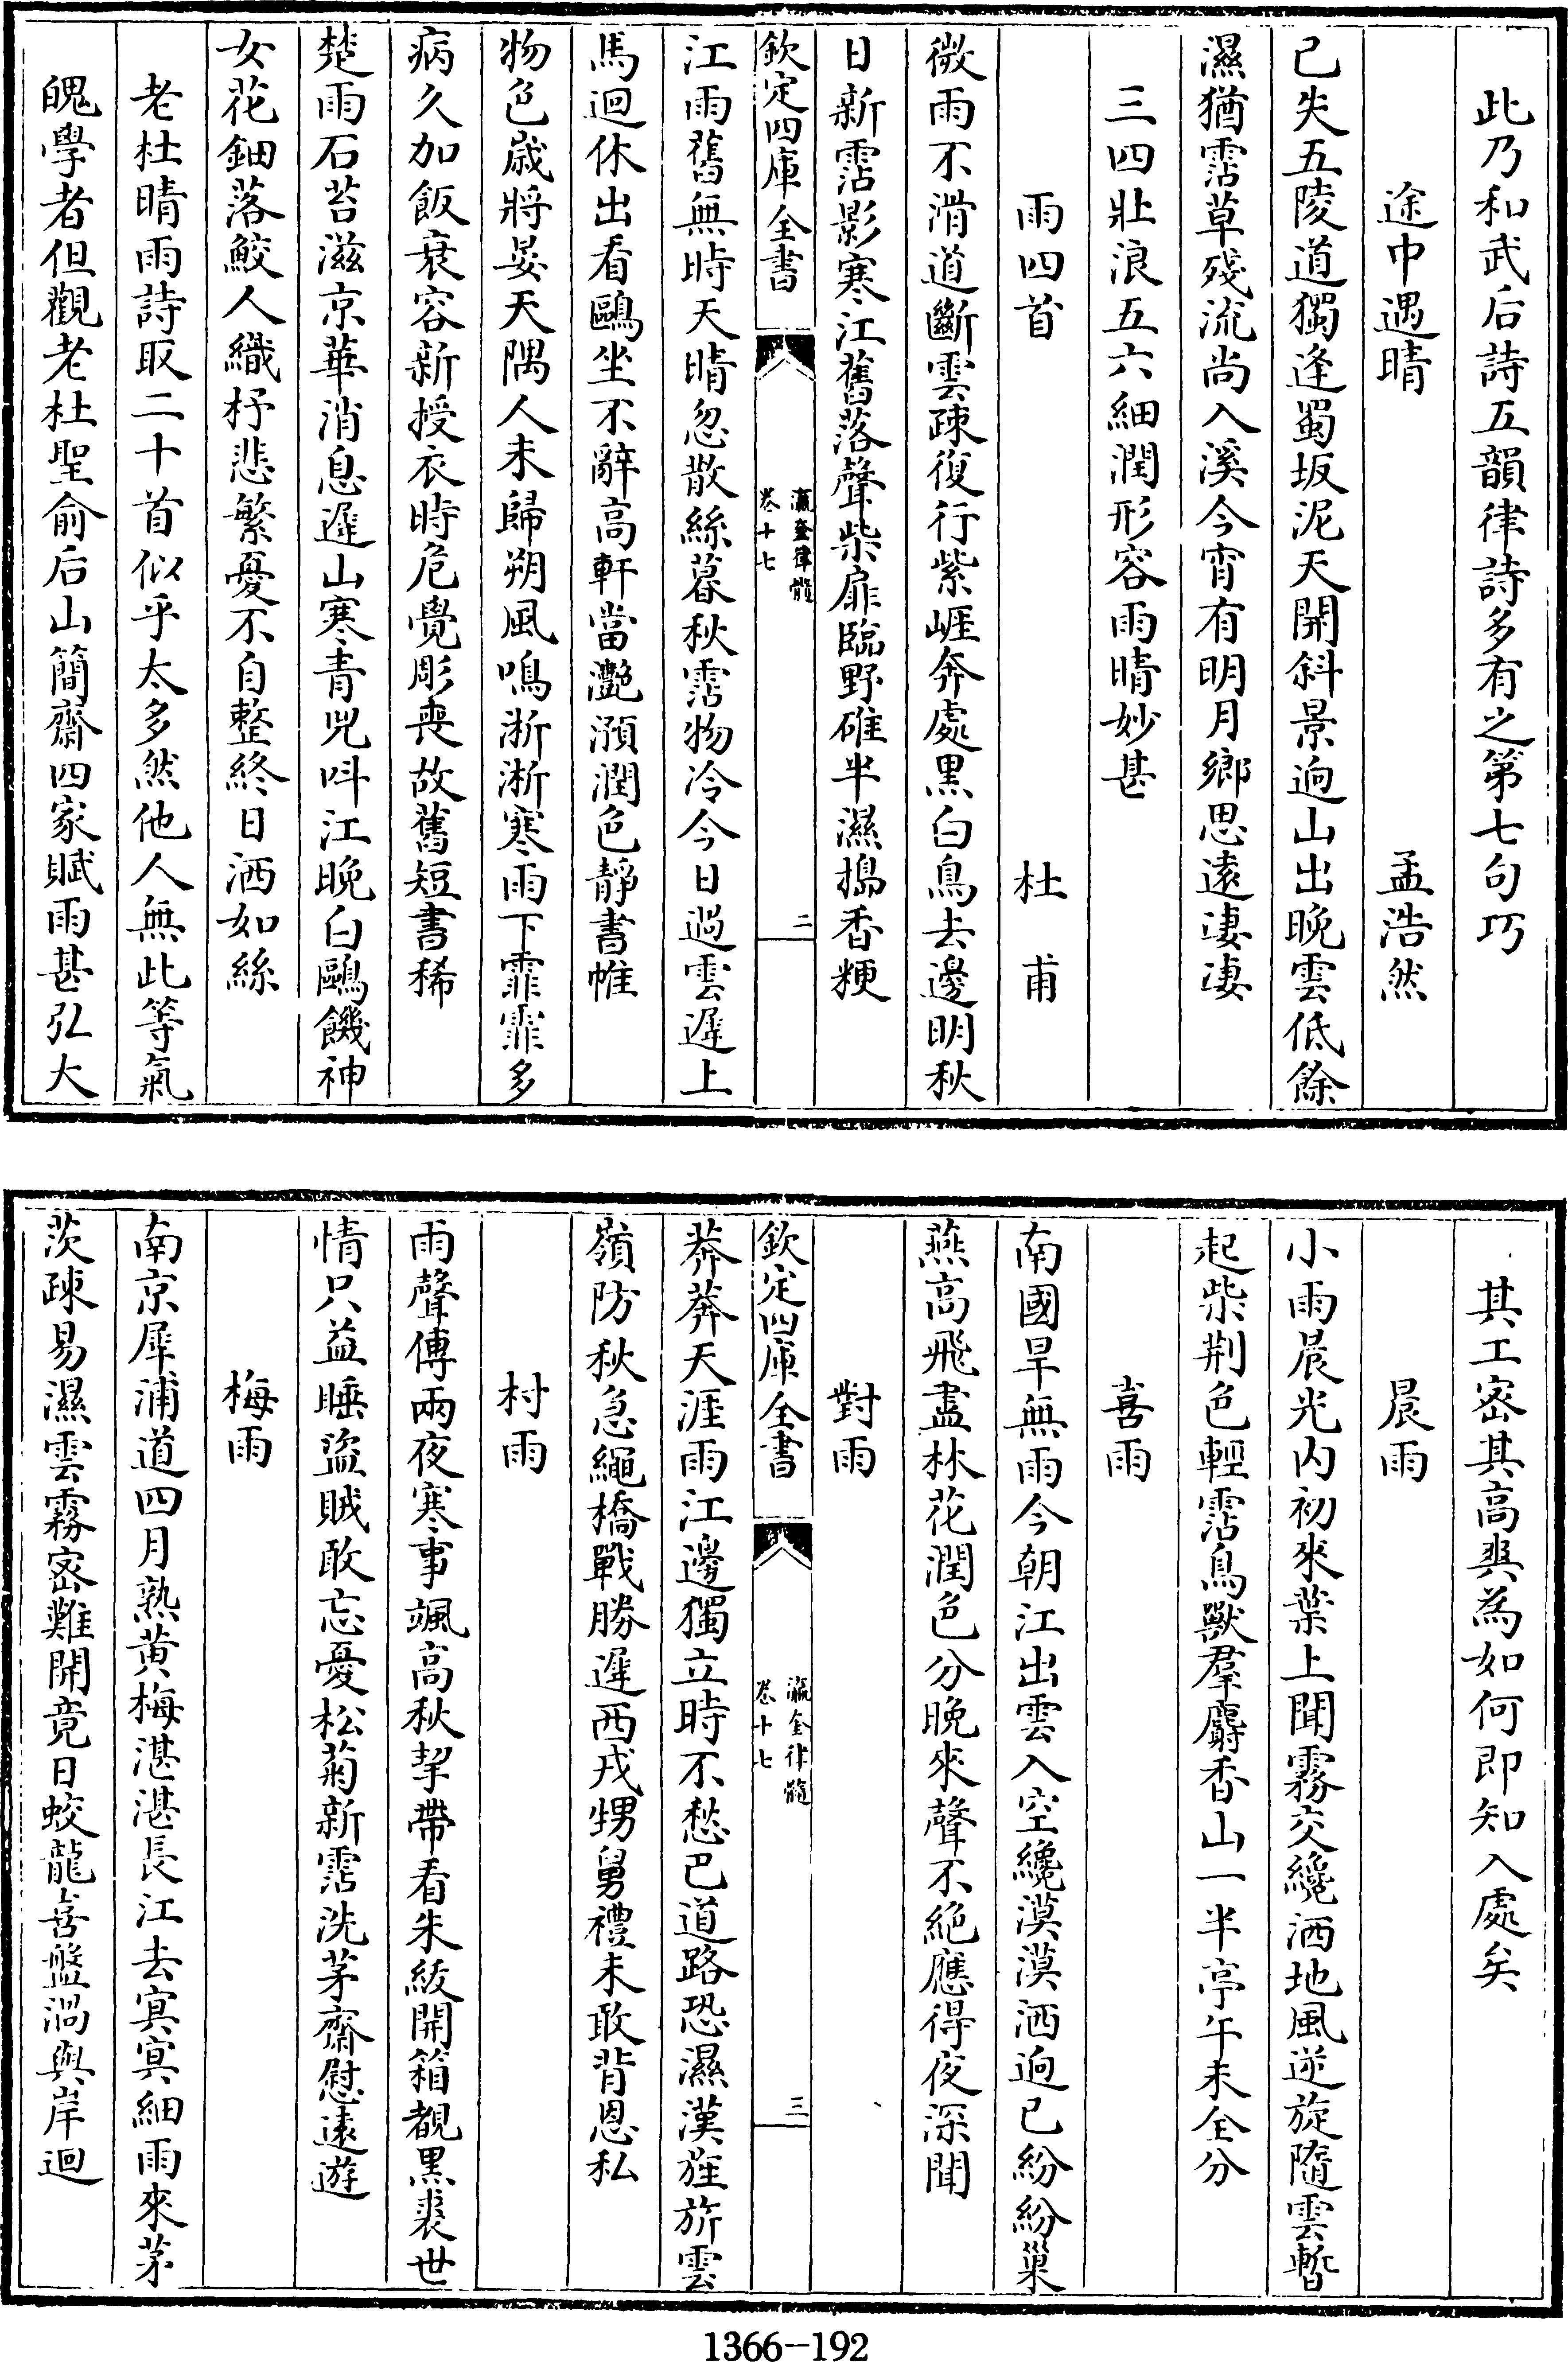 此乃和武后詩五韻律詩多有之第七句巧
途中遇晴　孟浩然
已失五陵道獨逢蜀坂泥天開斜景迥山出晚雲低餘
濕猶霑草殘流尚入溪今宵有明月鄉思遠凄凄
三四壯浪五六細潤形容雨晴妙甚
雨四首　杜甫
微雨不滑道斷雲疎復行紫崖奔處黑白鳥去邊明秋
日新霑影寒江舊落聲柴扉臨野碓半濕搗香粳
欽定四庫全書　瀛奎律髓　卷十七　二
江雨舊無時天晴忽散絲暮秋霑物冷今日過雲遲上
馬迴休出看鷗坐不辭高軒當灩澦潤色靜書帷
物色歲將晏天隅人未歸朔風鳴淅淅寒雨下霏霏多
病久加飯衰容新授衣時危覺彫喪故舊短書稀
楚雨石苔滋京華消息遲山寒青兕呌江晚白鷗饑神
女花鈿落鮫人織杼悲繁憂不自整終日洒如絲
老杜晴雨詩取二十首似乎太多然他人無此等氣
魄學者但觀老杜聖俞后山簡齋四家賦雨甚弘大
其工密其高爽為如何即知入處矣
晨雨
小雨晨光内初來葉上聞霧交纔洒地風逆旋隨雲暫
起柴荆色輕霑鳥獸羣麝香山一半亭午未全分
喜雨
南國旱無雨今朝江出雲入空纔漠漠洒迥已紛紛巢
燕高飛盡林花潤色分晚來聲不絶應得夜深聞
對雨
欽定四庫全書　瀛奎律髓　卷十七　三
莽莽天涯雨江邊獨立時不愁巴道路恐濕漢旌旂雲
嶺防秋急繩橋戰勝遲西戎甥舅禮未敢背恩私
村雨
雨聲傳兩夜寒事颯高秋挈帶看朱紱開箱覩黑裘世
情只益睡盜賊敢忘憂松菊新霑洗茅齋慰遠遊
梅雨
南京犀浦道四月熟黄梅湛湛長江去冥冥細雨來茅
茨疎易濕雲霧密難開竟日蛟龍喜盤渦與岸迴
1366-192